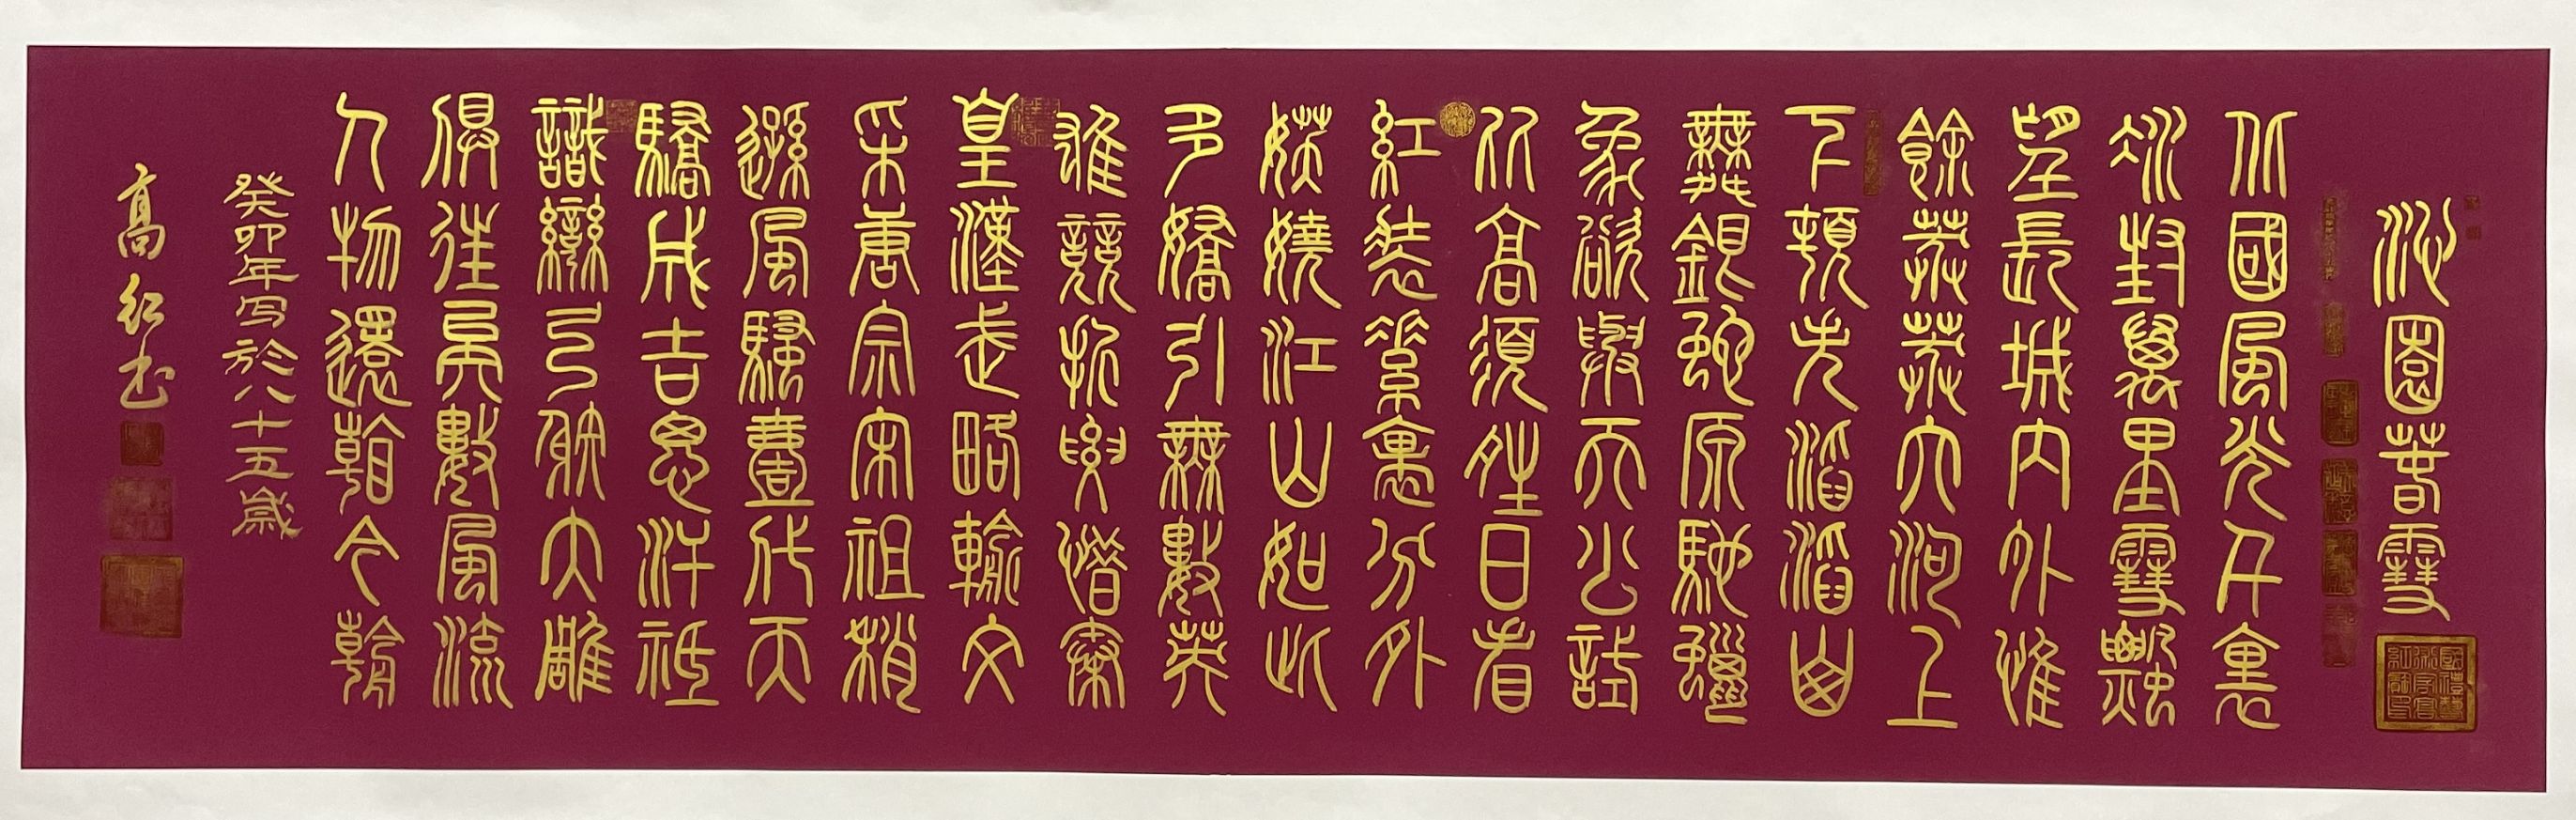 沁園春雪
北國風光千裏
冰封萬里雪飄
望長城內外惟
餘莽莽大河上
下頓失滔滔山
舞銀蛇原馳蠟
象欲與天公試
比高須晴日看
紅裝素裹分外
妖嬈江山如此
多嬌引無數英
雄競折腰惜秦
皇漢武略輸文
采唐宗宋祖稍
遜風騷壹代天
驕成吉思汗祗
識彎弓射大雕
俱往矣數風流
人物還看今朝
癸卯年写於八十五歲
高红书